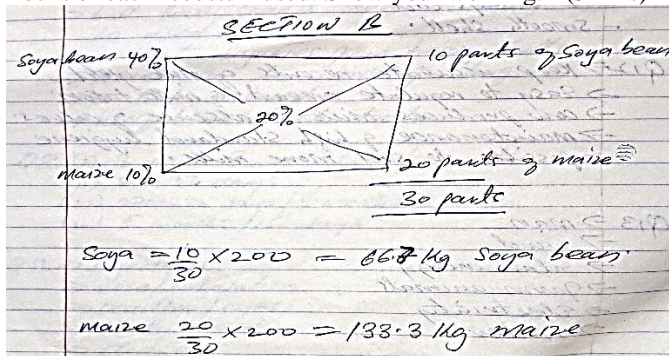 SECTION B
Soya bean 40%
10 parts of Soya bean
20%
maize 10%
20 parts of maize
30 parts
Soya = 10/30 x 200 = 66.7 Kg Soya bean.
maize 20/30 x 200 = 133.3 Kg maize